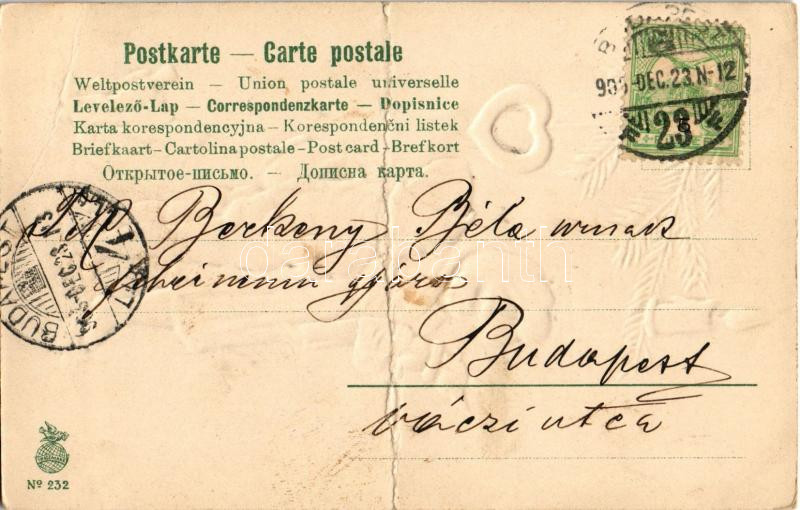 Postkarte — Carte postale
Weltpostverein — Union postale universelle
Levelező-Lap — Correspondenzkarte — Dopisnice
Karta korespondencyjna – Korespondenčni listek
Briefkaart – Cartolina postale – Post card – Brefkort
Открытое-письмо. — Дописна карта.
BUDAPEST
905 DEC. 23. N-12
23
BUDAPEST
DEC. 23
Berkeny Béla
Budapest
váczi utca
darabanth
Nº 232